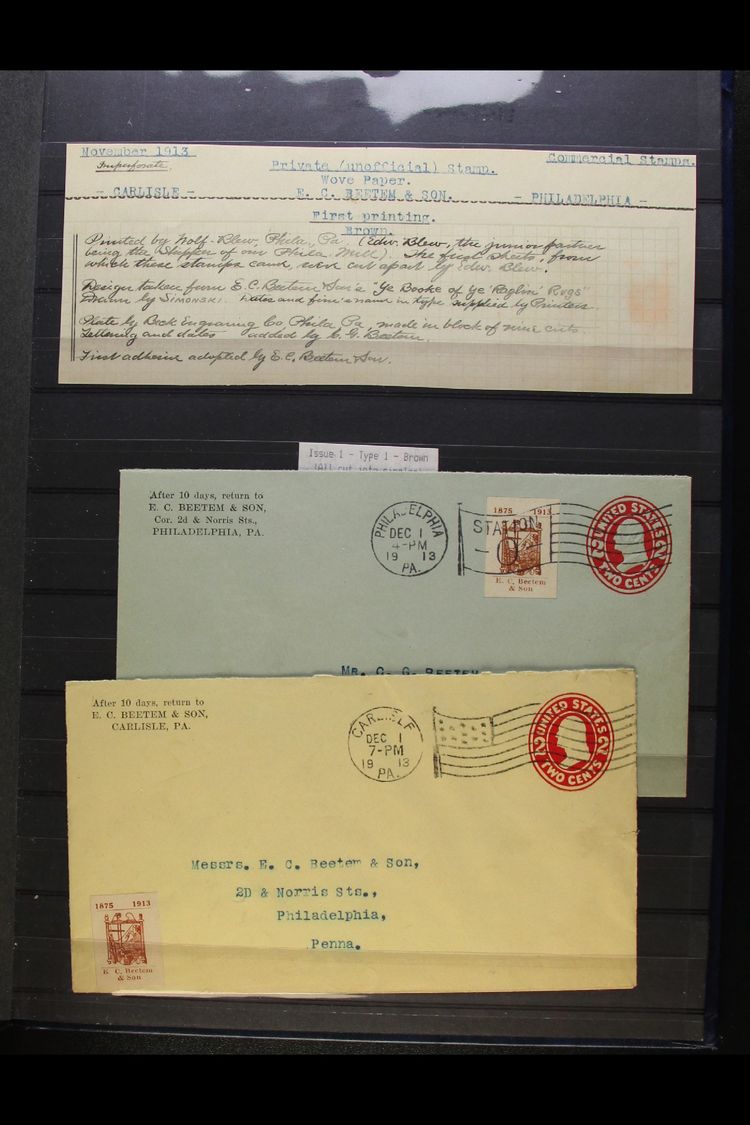 November 1913
Imperforate.
Private (unofficial) Stamp.
Commercial Stamps.
Wove Paper.
- CARLISLE -
E. C. BEETEM & SON.
- PHILADELPHIA -
First printing.
Brown.
Printed by Wolf-Blew, Phila, Pa. (Edw. Blew, the junior partner
being the Shipper of our Phila. Mill). The first sheets, from
which these stamps came, were cut apart by Edw. Blew.
Design taken from E. C. Beetem & Son's "Ye Booke of Ye 'Raglin' Rugs"
Drawn by Simonski. Dates and firm's name in type supplied by Printers.
Plate by Beck Engraving Co, Phila Pa, made in block of nine cuts.
Lettering and dates added by C. G. Beetem.
First adhesive adopted by E. C. Beetem & Son.
Issue 1 - Type 1 - Brown
(All cut into singles)
After 10 days, return to
E. C. BEETEM & SON,
Cor. 2d & Norris Sts.,
PHILADELPHIA, PA.
PHILADELPHIA
DEC 1
4-PM
19 13
PA.
STATION
1875 1913
E. C. Beetem
& Son
UNITED STATES
2 2
TWO CENTS
MR. C. G. BEETEM
After 10 days, return to
E. C. BEETEM & SON,
CARLISLE, PA.
CARLISLE
DEC 1
7-PM
19 13
PA.
UNITED STATES
2 2
TWO CENTS
Messrs. E. C. Beetem & Son,
2D & Norris Sts.,
Philadelphia,
Penna.
1875 1913
E. C. Beetem
& Son